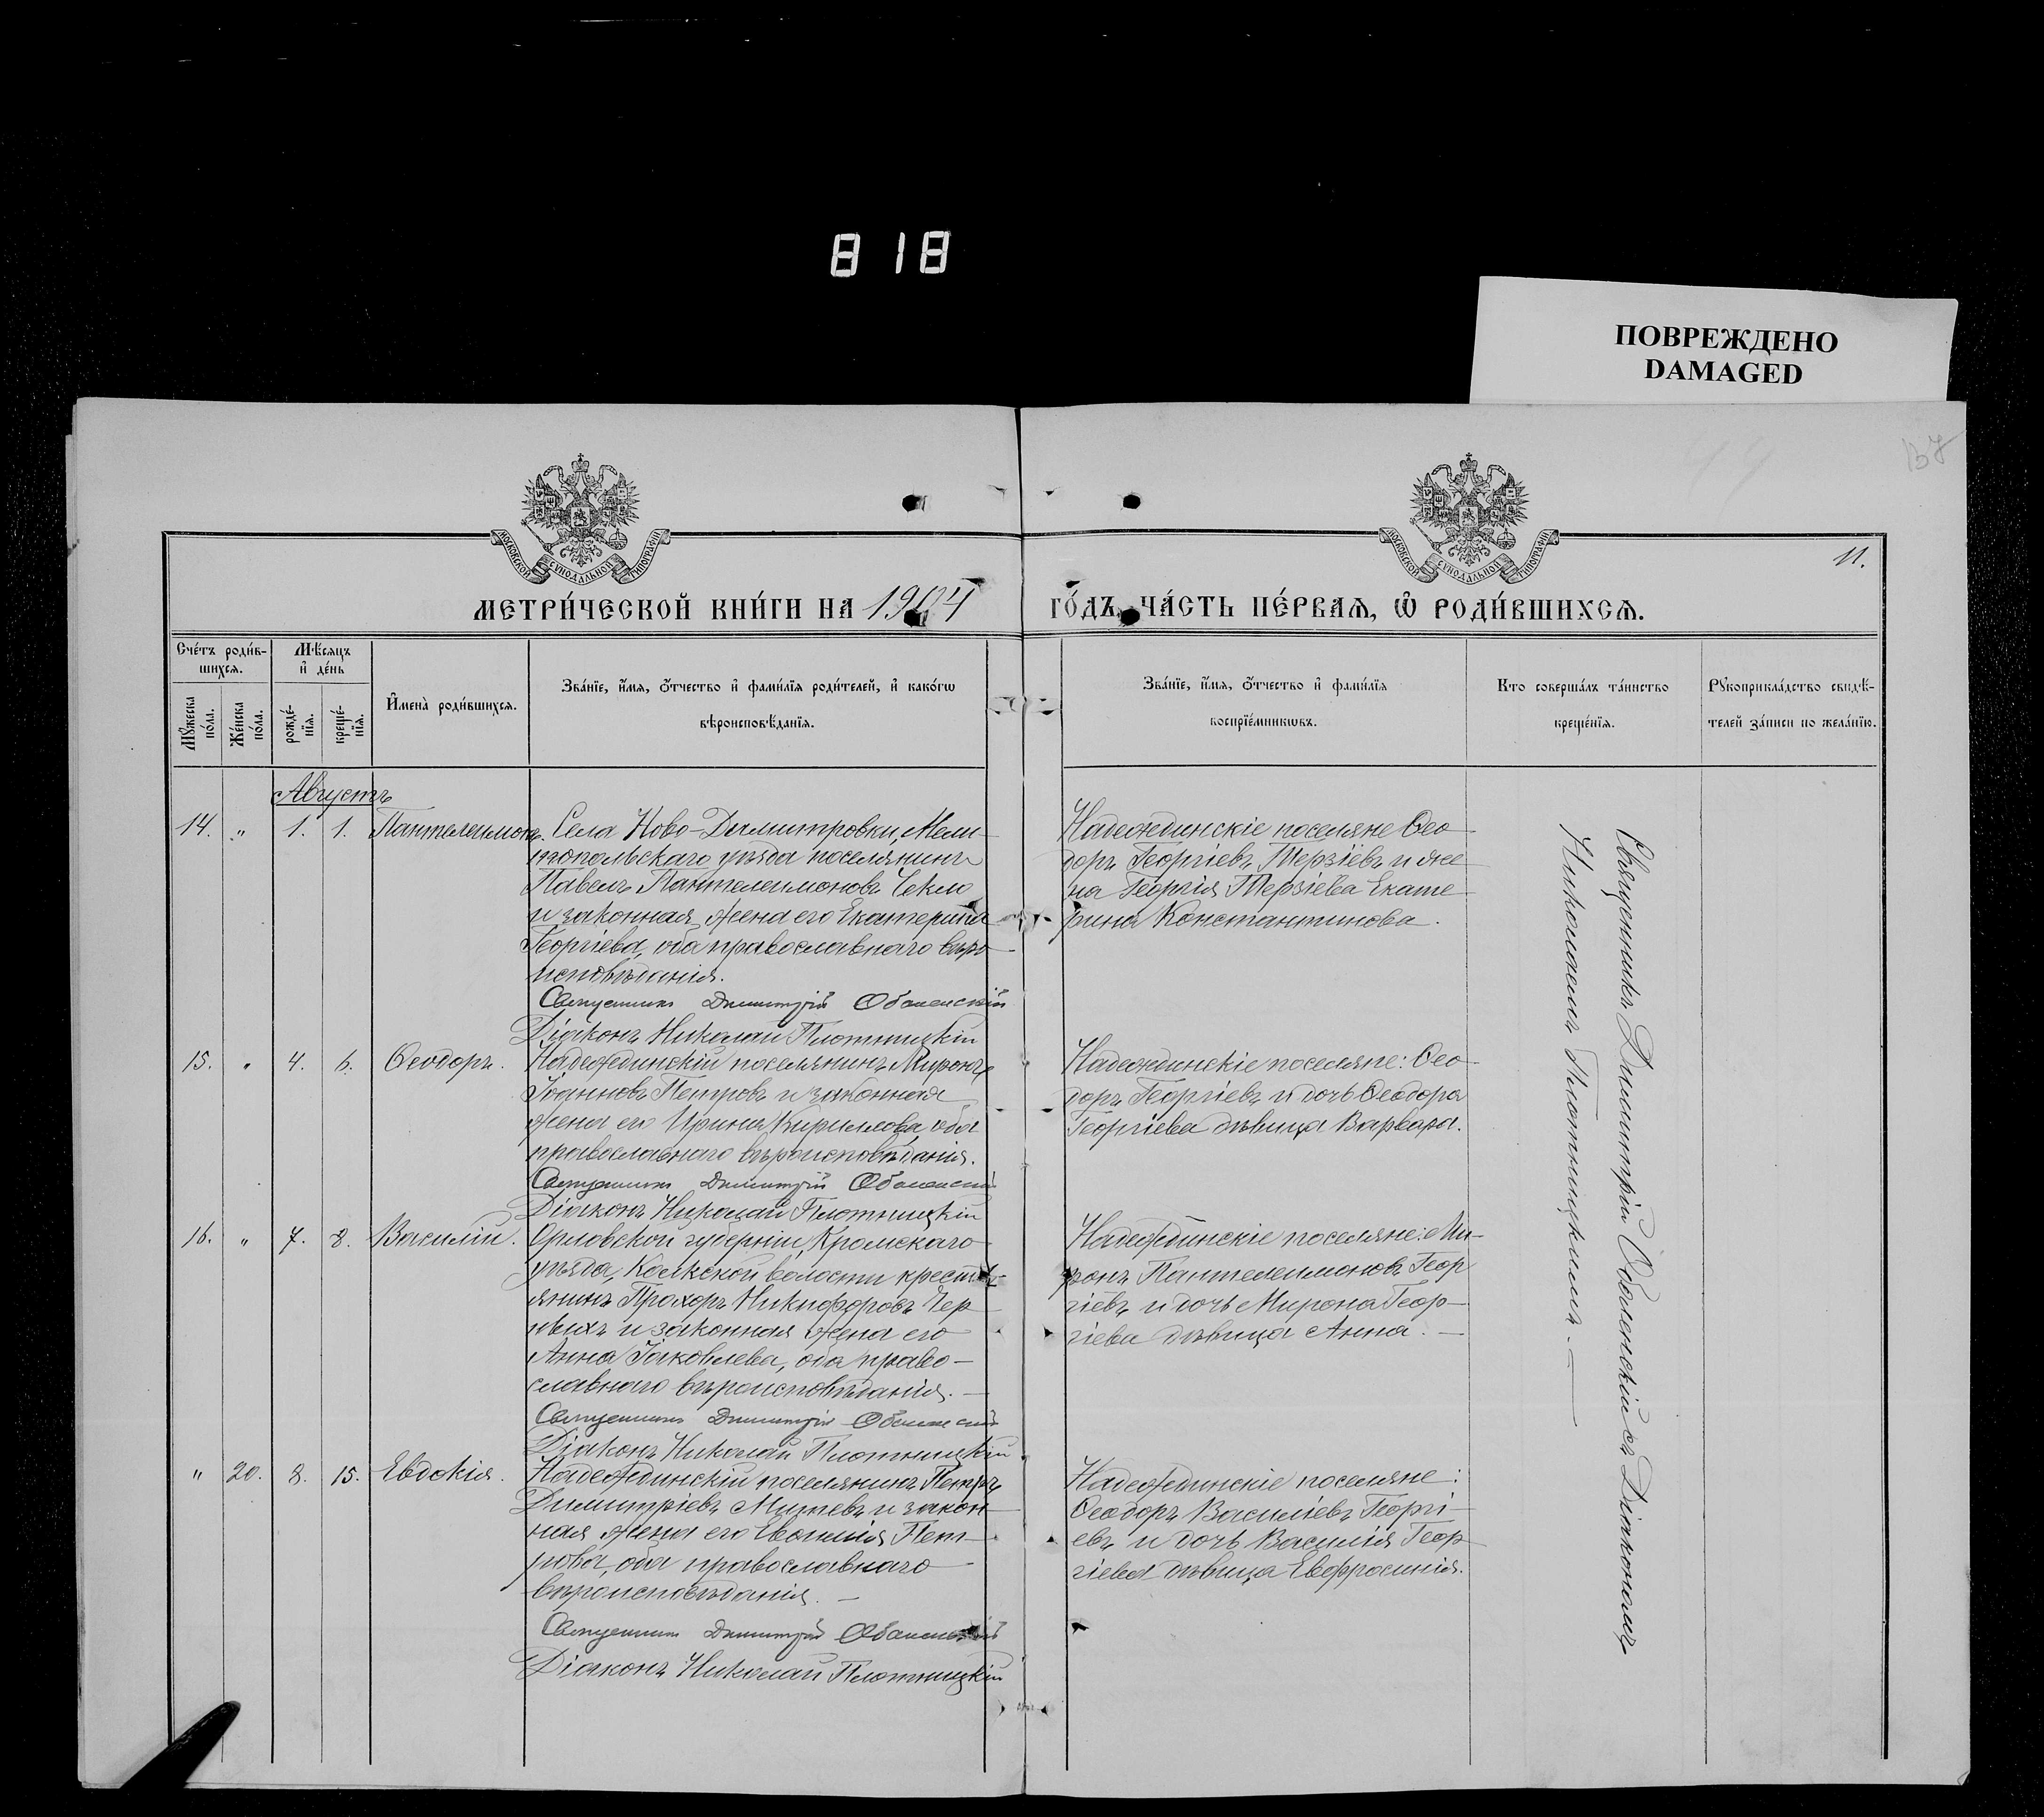 818
ПОВРЕЖДЕНО
DAMAGED
137
МОСКОВСКОЙ СУНОДАЛЬНОЙ ТИПОГРАФІИ
МОСКОВСКОЙ СУНОДАЛЬНОЙ ТИПОГРАФІИ
11.
МЕТРИ́ЧЕСКОЙ КНИ́ГИ НА 1904
ГО́ДЪ, ЧА́СТЬ ПЕ́РВАѦ, Ѡ҆ РОДИ́ВШИХСѦ.
Сче́тъ роди́в-
шихсѧ.
Мѣ́сѧцъ
и҆ де́нь
Мꙋ́жеска
по́ла.
Же́нска
по́ла.
рожде́-
нїѧ.
креще́-
нїѧ.
И҆мена̀ роди́вшихсѧ.
Зва́нїе, и҆́мѧ, ѻ҆́тчество и҆ фами́лїѧ роди́телей, и҆ како́гѡ
вѣроисповѣ́данїѧ.
Зва́нїе, и҆́мѧ, ѻ҆́тчество и҆ фами́лїѧ
воспрїе́мникѡвъ.
Кто соверша́лъ та́инство
креще́нїѧ.
Рꙋкоприкла́дство свидѣ́-
телей за́писи по жела́нїю.
Августъ
14. " 1. 1. Пантелеимонъ.
Села Ново-Димитровки, Мели-
топольскаго уѣзда поселянинъ
Павелъ Пантелеимоновъ Чекло
и законная жена его Екатерина
Георгіева, оба православнаго вѣро-
исповѣданія.
Священникъ Димитрій Оболенскій
Діаконъ Николай Плотницкій
Надеждинскіе поселяне Ѳео-
доръ Георгіевъ Терзіевъ и же-
на Георгія Терзіева Екате-
рина Константинова.
15. " 4. 6. Ѳеодоръ.
Надеждинскій поселянинъ Миронъ
Іоанновъ Петровъ и законная
жена его Ирина Кириллова, оба
православнаго вѣроисповѣданія.
Священникъ Димитрій Оболенскій
Діаконъ Николай Плотницкій
Надеждинскіе поселяне: Ѳео-
доръ Георгіевъ и дочь Ѳеодора
Георгіева дѣвица Варвара.
16. " 7. 8. Василій.
Орловской губерніи, Кромскаго
уѣзда, волости кресть-
янинъ Прохоръ Никифоровъ Чер-
ныхъ и законная жена его
Анна Іаковлева, оба право-
славнаго вѣроисповѣданія. —
Священникъ Димитрій Оболенскій
Діаконъ Николай Плотницкій
Надеждинскіе поселяне: Ми-
ронъ Пантелеимоновъ Геор-
гіевъ и дочь Мирона Геор-
гіева дѣвица Анна. —
" 20. 8. 15. Евдокія.
Надеждинскій поселянинъ Петръ
Димитріевъ Митевъ и закон-
ная жена его Евгенія Пет-
рова, оба православнаго
вѣроисповѣданія. —
Священникъ Димитрій Оболенскій
Діаконъ Николай Плотницкій
Надеждинскіе поселяне:
Ѳеодоръ Василіевъ Георгі-
евъ и дочь Василія Геор-
гіева дѣвица Евфросинія.
Священникъ Димитрій Оболенскій съ Діакономъ
Николаемъ Плотницкимъ. —